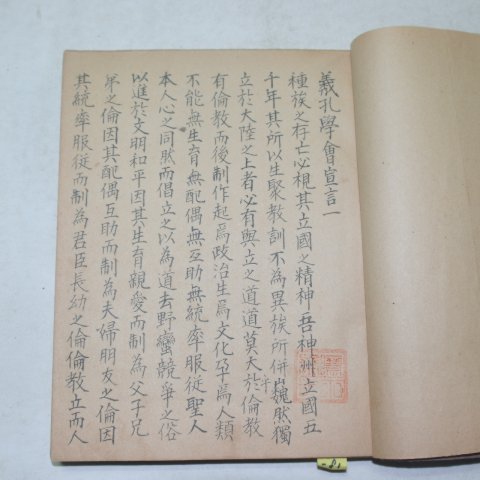 義孔學會宣言一
種族之存亡必視其立國之精神吾神州立國五
千年其所以生聚教訓不為異族所併巍然獨
立於大陸之上者必有與立之道道莫大於倫教
有倫教而後制作起焉政治生焉文化孕焉人類
不能無生育無配偶無互助無統率服從聖人
本人心之同然而倡立之以為道去野蠻競爭之俗
以進於文明和平因其生育親愛而制為父子兄
弟之倫因其配偶互助而制為夫婦朋友之倫因
其統率服從而制為君臣長幼之倫倫教立而人